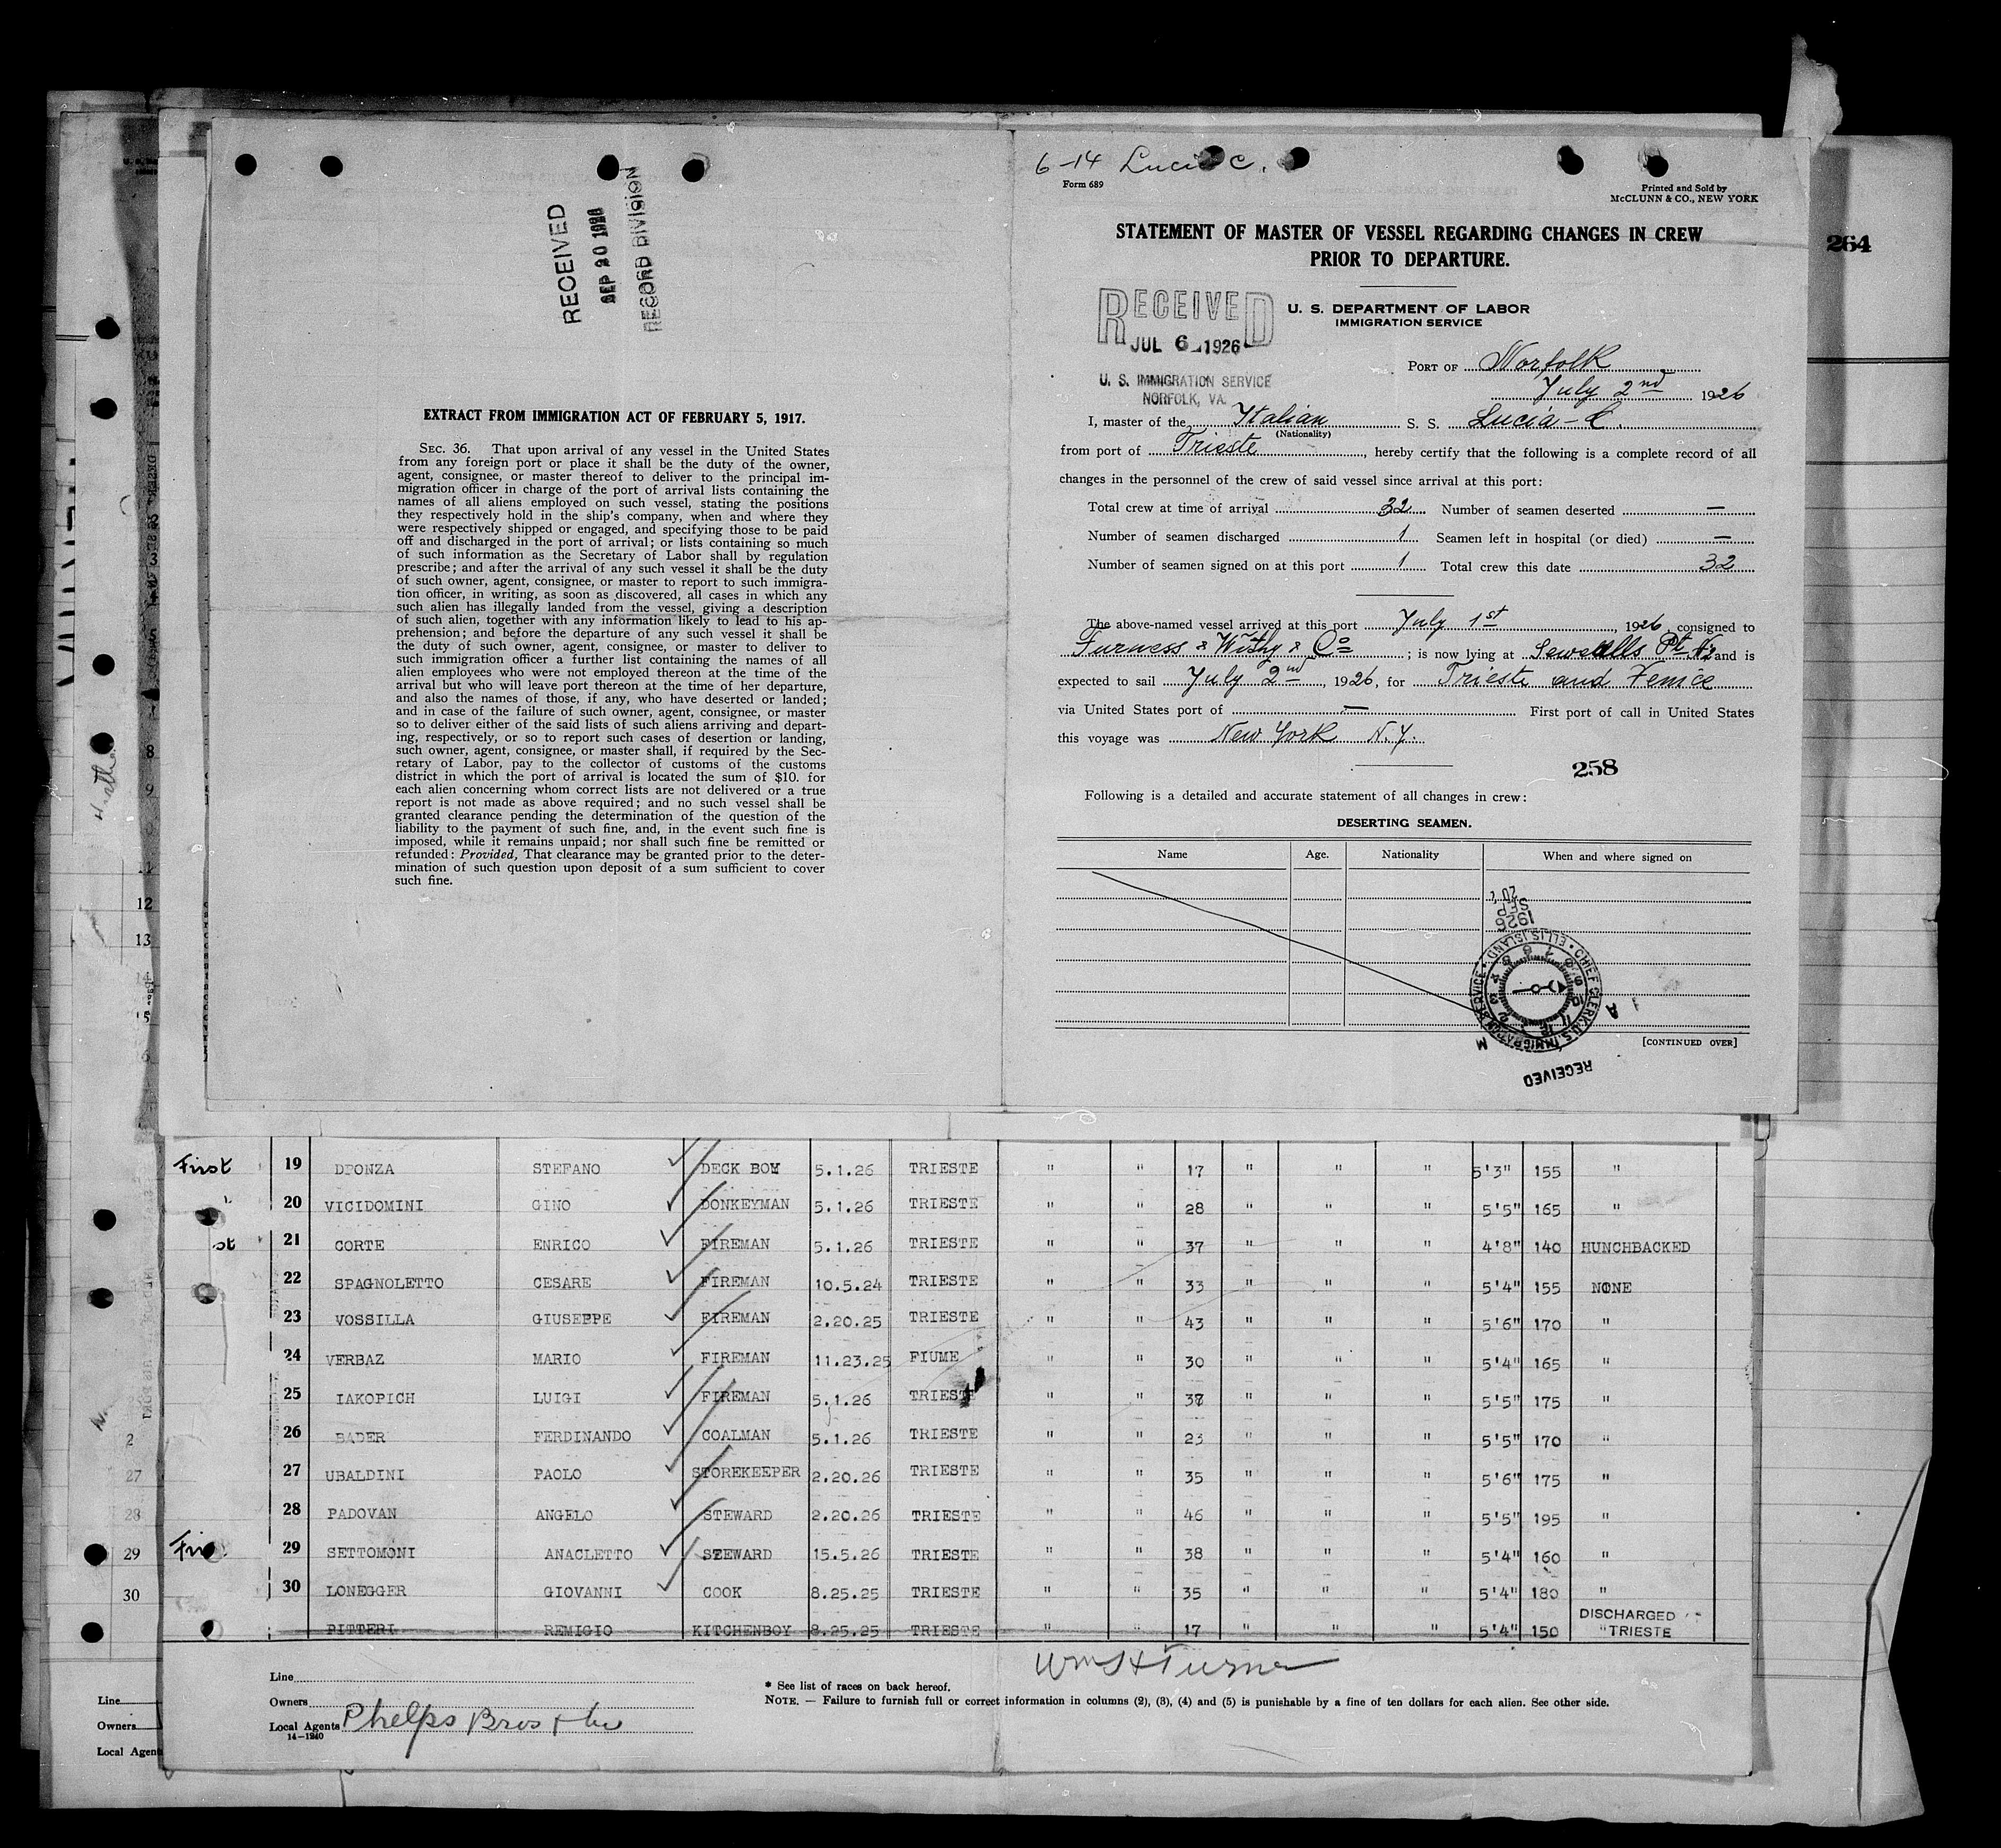 RECEIVED
SEP 20 1926
RECORD DIVISION
EXTRACT FROM IMMIGRATION ACT OF FEBRUARY 5, 1917.
SEC. 36. That upon arrival of any vessel in the United States
from any foreign port or place it shall be the duty of the owner,
agent, consignee, or master thereof to deliver to the principal im-
migration officer in charge of the port of arrival lists containing the
names of all aliens employed on such vessel, stating the positions
they respectively hold in the ship's company, when and where they
were respectively shipped or engaged, and specifying those to be paid
off and discharged in the port of arrival; or lists containing so much
of such information as the Secretary of Labor shall by regulation
prescribe; and after the arrival of any such vessel it shall be the duty
of such owner, agent, consignee, or master to report to such immigra-
tion officer, in writing, as soon as discovered, all cases in which any
such alien has illegally landed from the vessel, giving a description
of such alien, together with any information likely to lead to his ap-
prehension; and before the departure of any such vessel it shall be
the duty of such owner, agent, consignee, or master to deliver to
such immigration officer a further list containing the names of all
alien employees who were not employed thereon at the time of the
arrival but who will leave port thereon at the time of her departure,
and also the names of those, if any, who have deserted or landed;
and in case of the failure of such owner, agent, consignee, or master
so to deliver either of the said lists of such aliens arriving and depart-
ing, respectively, or so to report such cases of desertion or landing,
such owner, agent, consignee, or master shall, if required by the Sec-
retary of Labor, pay to the collector of customs of the customs
district in which the port of arrival is located the sum of $10. for
each alien concerning whom correct lists are not delivered or a true
report is not made as above required; and no such vessel shall be
granted clearance pending the determination of the question of the
liability to the payment of such fine, and, in the event such fine is
imposed, while it remains unpaid; nor shall such fine be remitted or
refunded: Provided, That clearance may be granted prior to the deter-
mination of such question upon deposit of a sum sufficient to cover
such fine.
6-14 Lucia C.
Form 689
Printed and Sold by
McCLUNN & CO., NEW YORK
264
STATEMENT OF MASTER OF VESSEL REGARDING CHANGES IN CREW
PRIOR TO DEPARTURE.
RECEIVED
JUL 6 1926
U. S. IMMIGRATION SERVICE
NORFOLK, VA.
U. S. DEPARTMENT OF LABOR
IMMIGRATION SERVICE
PORT OF Norfolk
July 2nd 1926
I, master of the Italian S. S. Lucia-C.
(Nationality)
from port of Trieste, hereby certify that the following is a complete record of all
changes in the personnel of the crew of said vessel since arrival at this port:
Total crew at time of arrival 32 Number of seamen deserted —
Number of seamen discharged 1 Seamen left in hospital (or died) —
Number of seamen signed on at this port 1 Total crew this date 32
The above-named vessel arrived at this port July 1st, 1926, consigned to
Furness & Withy & Co ; is now lying at Sewells Pt and is
expected to sail July 2nd, 1926, for Trieste and Venice
via United States port of — First port of call in United States
this voyage was New York N.Y.
258
Following is a detailed and accurate statement of all changes in crew:
DESERTING SEAMEN.
Name Age. Nationality When and where signed on
1926
SEP
20
CHIEF CLERK U.S. IMMIGRATION SERVICE • ELLIS ISLAND
A M
RECEIVED
[CONTINUED OVER]
First 19 DPONZA STEFANO DECK BOY 5.1.26 TRIESTE " " 17 " " " 5'3" 155 "
20 VICIDOMINI GINO DONKEYMAN 5.1.26 TRIESTE " " 28 " " " 5'5" 165 "
st 21 CORTE ENRICO FIREMAN 5.1.26 TRIESTE " " 37 " " " 4'8" 140 HUNCHBACKED
22 SPAGNOLETTO CESARE FIREMAN 10.5.24 TRIESTE " " 33 " " " 5'4" 155 NONE
23 VOSSILLA GIUSEPPE FIREMAN 2.20.25 TRIESTE " " 43 " " " 5'6" 170 "
24 VERBAZ MARIO FIREMAN 11.23.25 FIUME " " 30 " " " 5'4" 165 "
25 IAKOPICH LUIGI FIREMAN 5.1.26 TRIESTE " " " " " 5'5" 175 "
26 BADER FERDINANDO COALMAN 5.1.26 TRIESTE " " 23 " " " 5'5" 170 "
27 UBALDINI PAOLO STOREKEEPER 2.20.26 TRIESTE " " 35 " " " 5'6" 175 "
28 PADOVAN ANGELO STEWARD 2.20.26 TRIESTE " " 46 " " " 5'5" 195 "
29 SETTOMONI ANACLETTO STEWARD 15.5.26 TRIESTE " " 38 " " " 5'4" 160 "
30 LONEGGER GIOVANNI COOK 8.25.25 TRIESTE " " 35 " " " 5'4" 180 "
PITTERI REMIGIO KITCHENBOY 8.25.25 TRIESTE " " 17 " " " 5'4" 150 DISCHARGED
" TRIESTE
Wm H Turner
Line
Owners
Local Agents Phelps Bros & Co
14—1240
* See list of races on back hereof.
NOTE. — Failure to furnish full or correct information in columns (2), (3), (4) and (5) is punishable by a fine of ten dollars for each alien. See other side.
8
9
11
12
13
15
27
28
29
30
Line
Owners
Local Agen